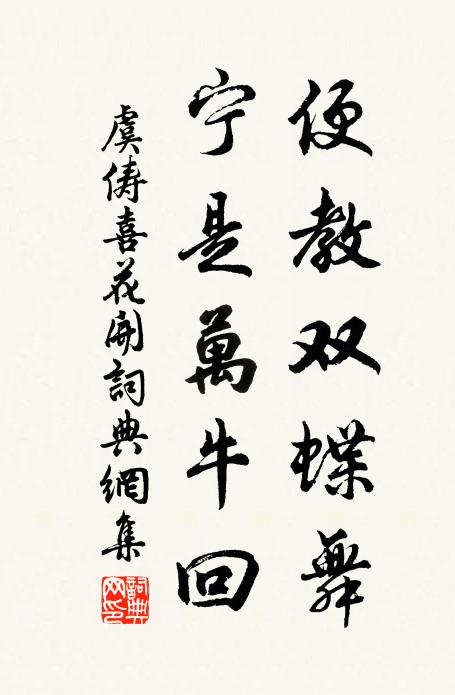 便教双蝶舞
宁是萬牛回
虞俦喜花開詞典網集
詞典网印